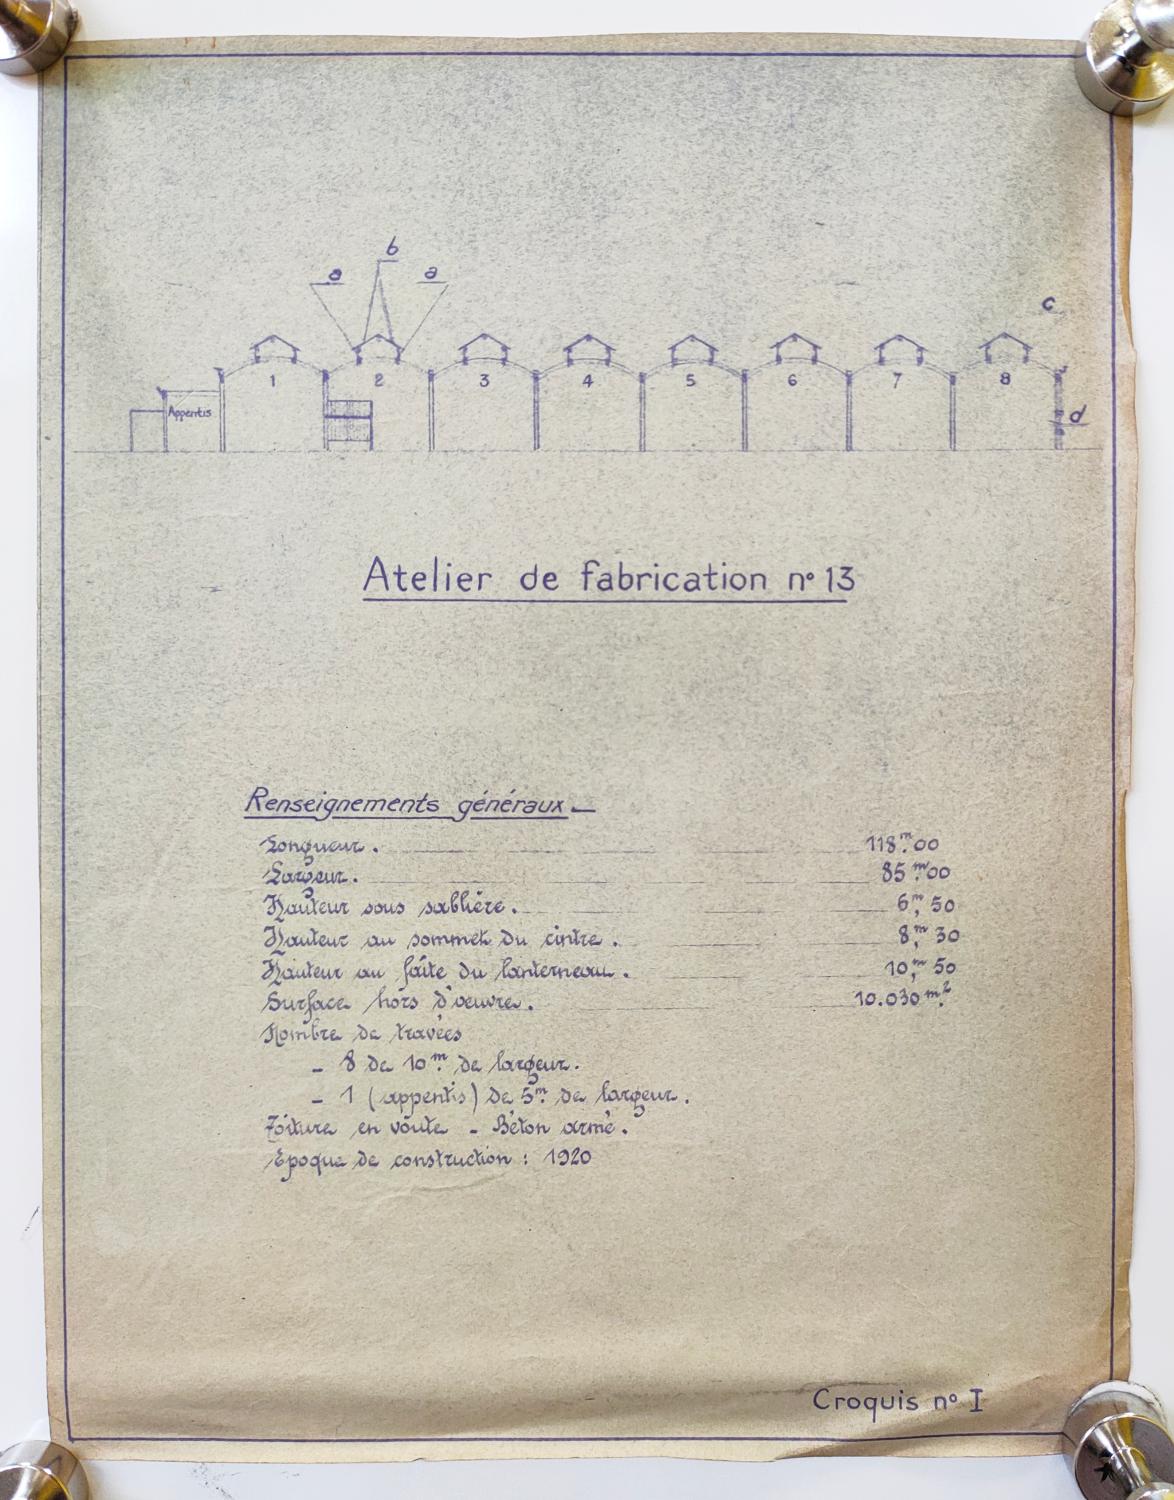 b
a a
c
1 2 3 4 5 6 7 8
Appentis
d
Atelier de fabrication n° 13
Renseignements généraux_
Longueur. 118m,00
Largeur. 85m,00
Hauteur sous sablière. 6m,50
Hauteur au sommet du cintre. 8m,30
Hauteur au faîte du lanterneau. 10m,50
Surface hors d'oeuvre. 10.030 m²
Nombre de travées
- 8 de 10m. de largeur.
- 1 (appentis) de 5m. de largeur.
Toiture en voûte - Béton armé.
Epoque de construction : 1920
Croquis n° I